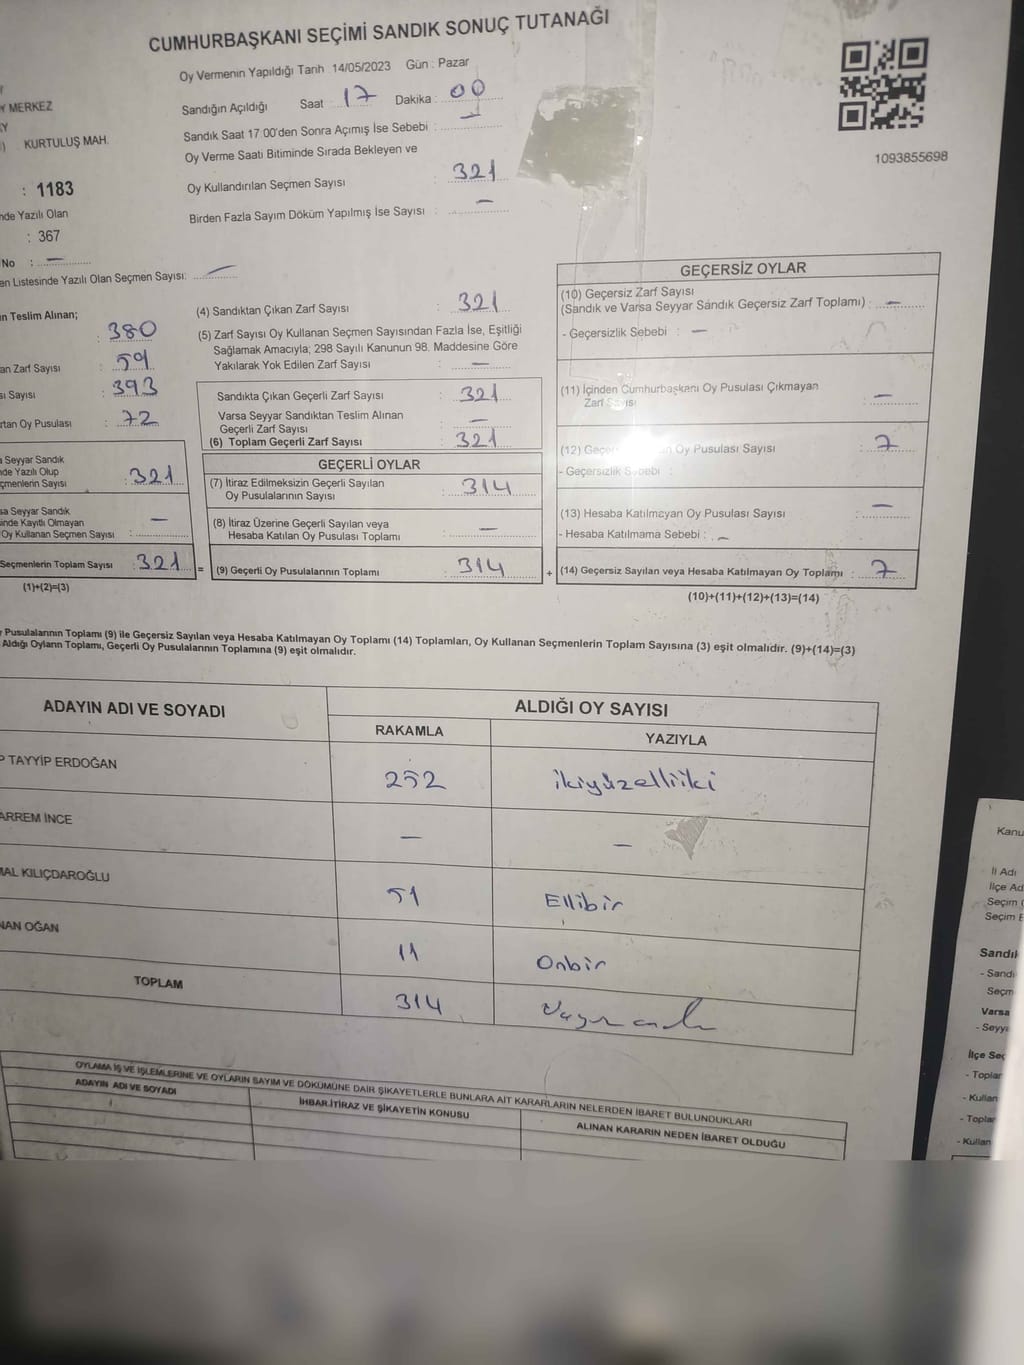 CUMHURBAŞKANI SEÇİMİ SANDIK SONUÇ TUTANAĞI
Oy Vermenin Yapıldığı Tarih 14/05/2023 Gün : Pazar
MERKEZ
Sandığın Açıldığı Saat 17 Dakika : 00
KURTULUŞ MAH.
Sandık Saat 17:00'den Sonra Açımış İse Sebebi : —
Oy Verme Saati Bitiminde Sırada Bekleyen ve
Oy Kullandırılan Seçmen Sayısı : 321
1093855698
: 1183
Birden Fazla Sayım Döküm Yapılmış İse Sayısı : —
nde Yazılı Olan
: 367
No : —
en Listesinde Yazılı Olan Seçmen Sayısı: —
n Teslim Alınan;
: 380
an Zarf Sayısı : 59
sı Sayısı : 393
rtan Oy Pusulası : 72
a Seyyar Sandık
nde Yazılı Olup
çmenlerin Sayısı : 321
sa Seyyar Sandık
inde Kayıtlı Olmayan
Oy Kullanan Seçmen Sayısı : —
Seçmenlerin Toplam Sayısı : 321
(1)+(2)=(3)
(4) Sandıktan Çıkan Zarf Sayısı : 321
(5) Zarf Sayısı Oy Kullanan Seçmen Sayısından Fazla İse, Eşitliği
Sağlamak Amacıyla; 298 Sayılı Kanunun 98. Maddesine Göre
Yakılarak Yok Edilen Zarf Sayısı : —
Sandıkta Çıkan Geçerli Zarf Sayısı : 321
Varsa Seyyar Sandıktan Teslim Alınan
Geçerli Zarf Sayısı : —
(6) Toplam Geçerli Zarf Sayısı : 321
GEÇERLİ OYLAR
(7) İtiraz Edilmeksizin Geçerli Sayılan
Oy Pusulalarının Sayısı : 314
(8) İtiraz Üzerine Geçerli Sayılan veya
Hesaba Katılan Oy Pusulası Toplamı : —
= (9) Geçerli Oy Pusulalarının Toplamı : 314
GEÇERSİZ OYLAR
(10) Geçersiz Zarf Sayısı
(Sandık ve Varsa Seyyar Sandık Geçersiz Zarf Toplamı) : —
- Geçersizlik Sebebi : —
(11) İçinden Cumhurbaşkanı Oy Pusulası Çıkmayan
Zarf Sayısı : —
(12) Geçer n Oy Pusulası Sayısı : 7
- Geçersizlik Sebebi :
(13) Hesaba Katılmayan Oy Pusulası Sayısı : —
- Hesaba Katılmama Sebebi : —
+ (14) Geçersiz Sayılan veya Hesaba Katılmayan Oy Toplamı : 7
(10)+(11)+(12)+(13)=(14)
Pusulalarının Toplamı (9) ile Geçersiz Sayılan veya Hesaba Katılmayan Oy Toplamı (14) Toplamları, Oy Kullanan Seçmenlerin Toplam Sayısına (3) eşit olmalıdır. (9)+(14)=(3)
Aldığı Oyların Toplamı, Geçerli Oy Pusulalarının Toplamına (9) eşit olmalıdır.
ADAYIN ADI VE SOYADI ALDIĞI OY SAYISI
RAKAMLA YAZIYLA
P TAYYİP ERDOĞAN 252 ikiyüzelliiki
ARREM İNCE — —
MAL KILIÇDAROĞLU 51 Ellibir
NAN OĞAN 11 Onbir
TOPLAM 314
OYLAMA İŞ VE İŞLEMLERİNE VE OYLARIN SAYIM VE DÖKÜMÜNE DAİR ŞİKAYETLERLE BUNLARA AİT KARARLARIN NELERDEN İBARET BULUNDUKLARI
ADAYIN ADI VE SOYADI İHBAR.İTİRAZ VE ŞİKAYETİN KONUSU ALINAN KARARIN NEDEN İBARET OLDUĞU
Kanu
İl Adı
İlçe Ad
Seçim
Seçim
Sandık
- Sandı
Seçm
Varsa
- Seyya
İlçe Seç
- Toplar
- Kullan
- Toplar
- Kullan